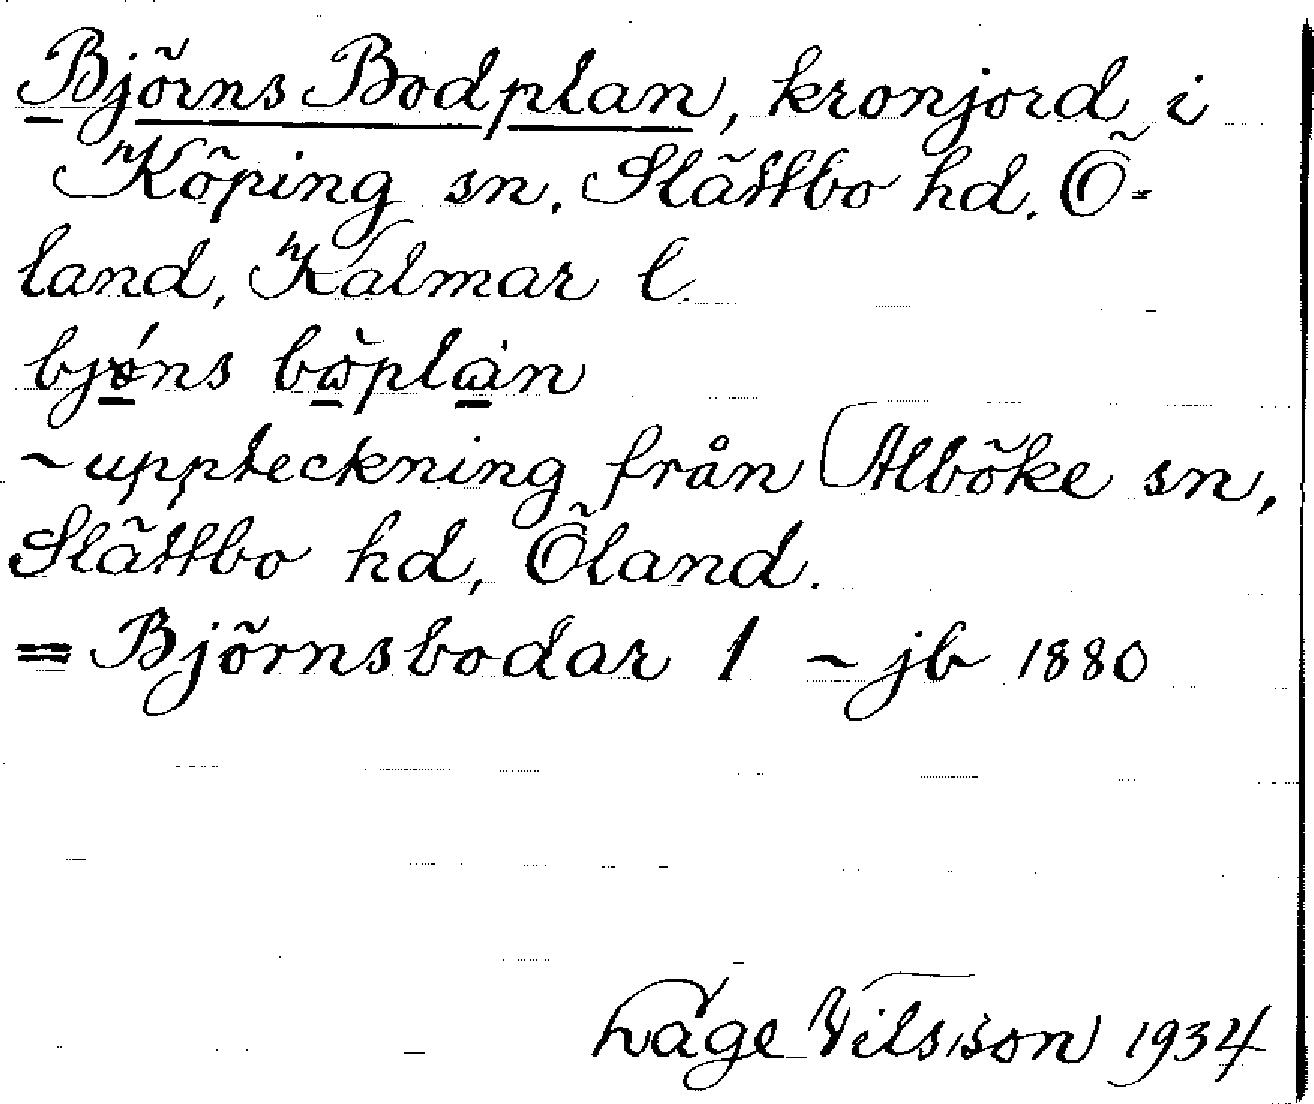 Björns Bodplan, kronjord i
Köping sn. Slättbo hd. Ö-
land, Kalmar l.
bjǿns bòplàn
~ uppteckning från Alböke sn,
Slättbo hd, Öland.
= Björnsbodar 1 ~ jb 1880
Låge Nilsson 1934